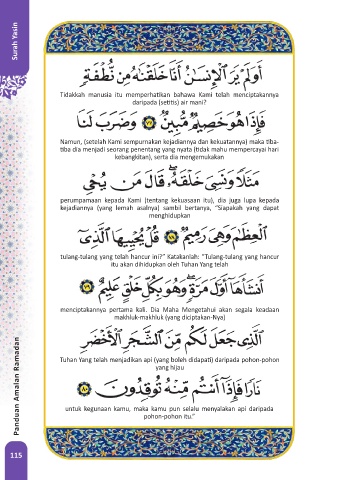 Surah Yasin
أَوَلَمْ يَرَ ٱلْإِنسَٰنُ أَنَّا خَلَقْنَٰهُ مِن نُّطْفَةٍ
Tidakkah manusia itu memperhatikan bahawa Kami telah menciptakannya
daripada (setitis) air mani?
فَإِذَا هُوَ خَصِيمٌ مُّبِينٌ ٧٧ وَضَرَبَ لَنَا
Namun, (setelah Kami sempurnakan kejadiannya dan kekuatannya) maka tiba-
tiba dia menjadi seorang penentang yang nyata (tidak mahu mempercayai hari
kebangkitan), serta dia mengemukakan
مَثَلًا وَنَسِىَ خَلْقَهُۥ ۖ قَالَ مَن يُحْىِ
perumpamaan kepada Kami (tentang kekuasaan itu), dia juga lupa kepada
kejadiannya (yang lemah asalnya) sambil bertanya, “Siapakah yang dapat
menghidupkan
ٱلْعِظَٰمَ وَهِىَ رَمِيمٌ ٧٨ قُلْ يُحْيِيهَا ٱلَّذِىٓ
tulang-tulang yang telah hancur ini?” Katakanlah: “Tulang-tulang yang hancur
itu akan dihidupkan oleh Tuhan Yang telah
أَنشَأَهَآ أَوَّلَ مَرَّةٍ ۖ وَهُوَ بِكُلِّ خَلْقٍ عَلِيمٌ ٧٩
menciptakannya pertama kali. Dia Maha Mengetahui akan segala keadaan
makhluk-makhluk (yang diciptakan-Nya)
ٱلَّذِى جَعَلَ لَكُم مِّنَ ٱلشَّجَرِ ٱلْأَخْضَرِ
Tuhan Yang telah menjadikan api (yang boleh didapati) daripada pohon-pohon
yang hijau
نَارًا فَإِذَآ أَنتُم مِّنْهُ تُوقِدُونَ ٨٠
untuk kegunaan kamu, maka kamu pun selalu menyalakan api daripada
pohon-pohon itu.”
Panduan Amalan Ramadan
115